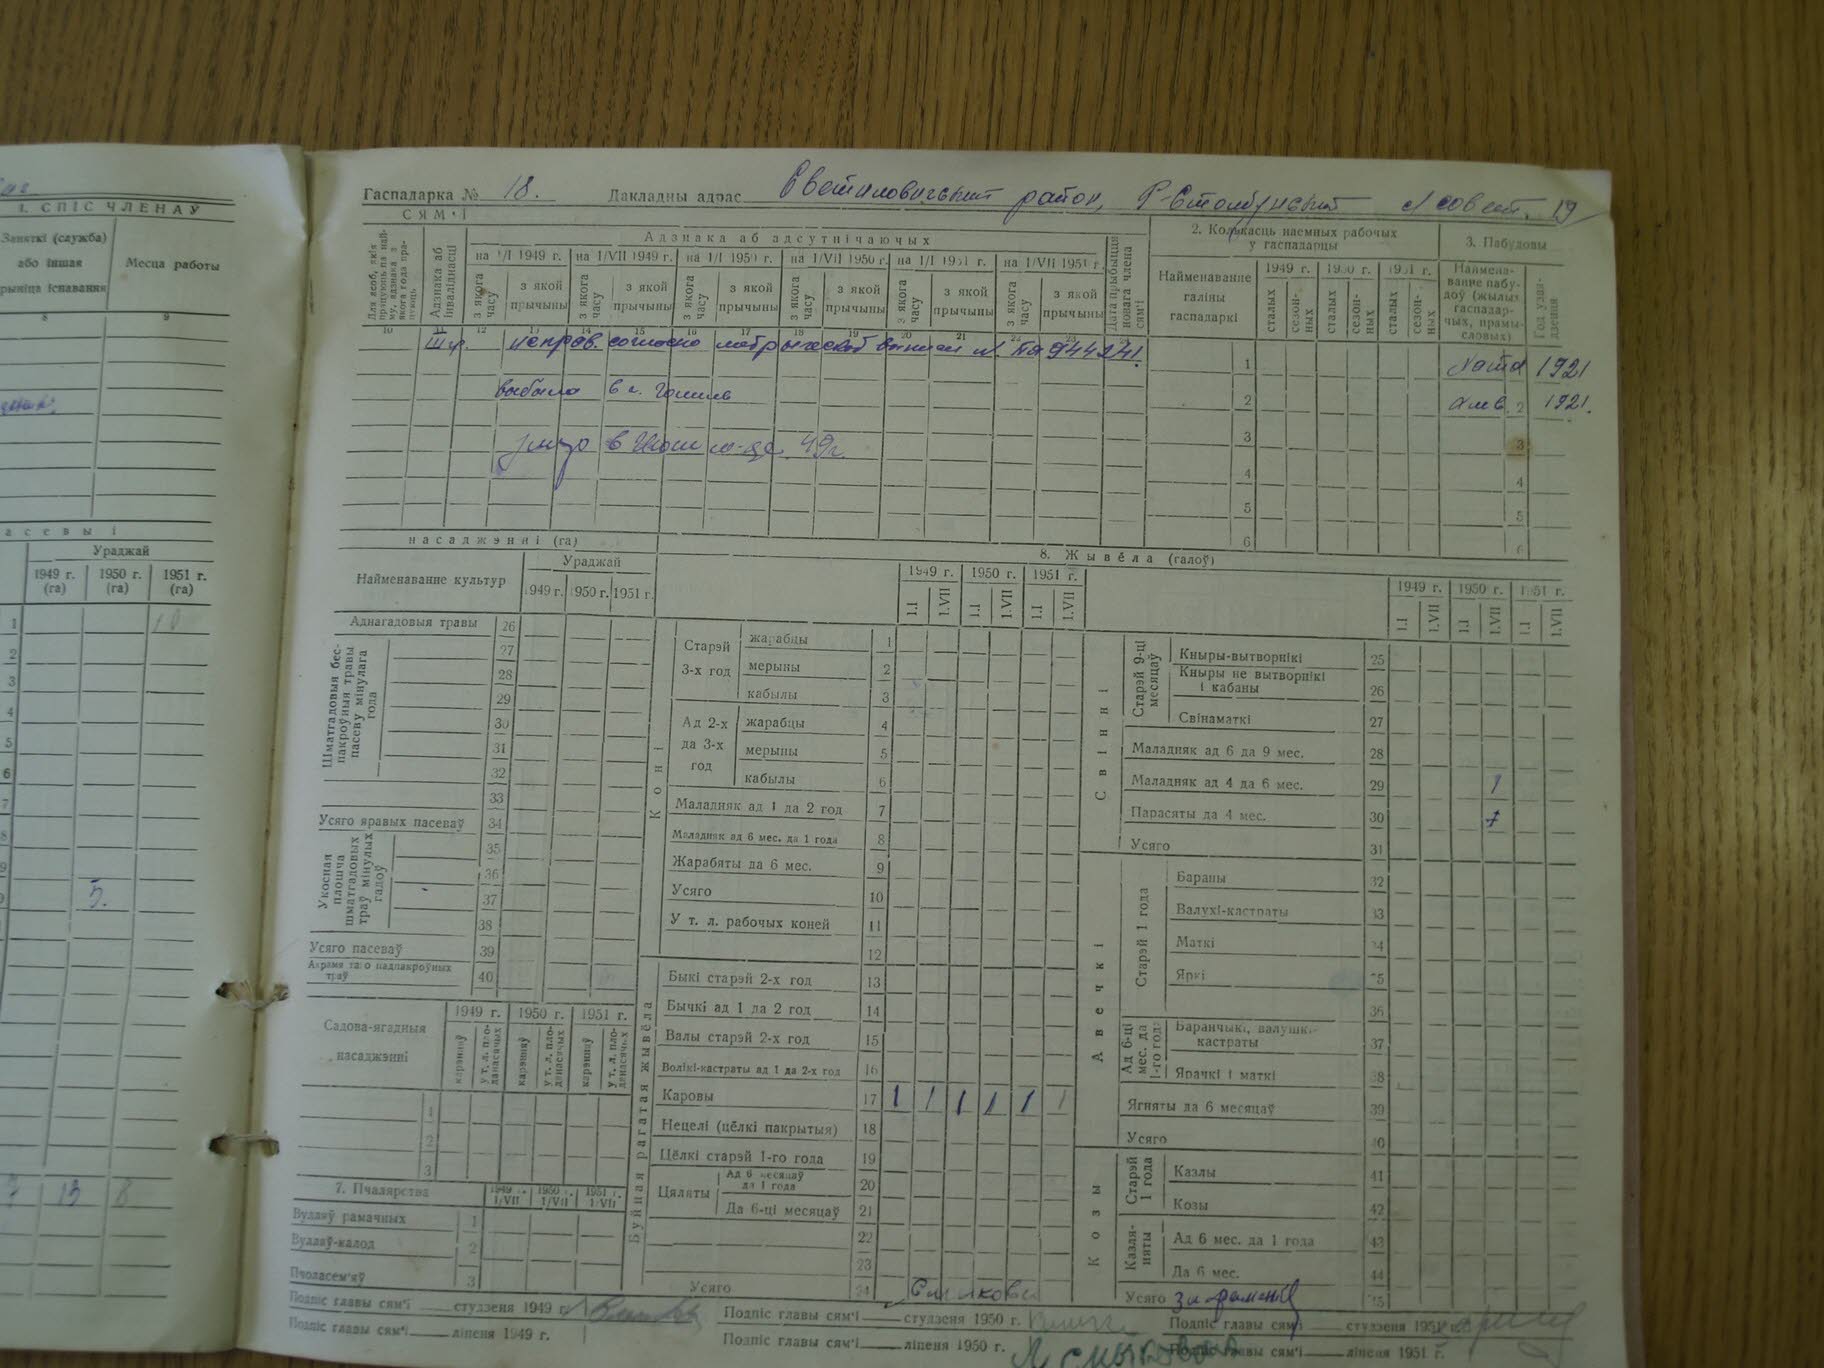 1. СПІС ЧЛЕНАЎ
Заняткі (служба) або іншая
Месца работы
8 9
Ураджай
1949 г. (га) 1950 г. (га) 1951 г. (га)
5.
13 8
Гаспадарка № 18. Дакладны адрас Светиловичский район,
СЯМ'І
Адзнака аб інваліднасці
Адзнака аб адсутнічаючых
на 1/I 1949 г. на 1/VII 1949 г. на 1/I 1950 г. на 1/VII 1950 г. на 1/I 1951 г. на 1/VII 1951 г.
з якога часу з якой прычыны з якога часу з якой прычыны з якога часу з якой прычыны з якога часу з якой прычыны з якога часу з якой прычыны з якога часу з якой прычыны
Дата прыбыцця новага члена сям'і
2. Колькасць наемных рабочых у гаспадарцы
Найменаванне галіны гаспадаркі
1949 г. 1950 г. 1951 г.
сталых сезонных сталых сезонных сталых сезонных
3. Пабудовы
Найменаванне пабудоў (жылых, гаспадарчых, прамысловых)
10 11 12 13 14 15 16 17 18 19 20 21 22 23
исправ. согласно
1 Хата 1921
выбыла в г. Гомель
2 хлев 2 1921.
3 в м-це 49г. 3
4 4
5 5
6 6
насаджэнні (га)
Найменаванне культур
Ураджай
1949 г. 1950 г. 1951 г.
Аднагадовыя травы 26
Шматгадовыя беспакроўныя травы пасеву мінулага года
27
28
29
30
31
32
33
Усяго яравых пасеваў 34
Укосная плошча шматгадовых траў мінулых гадоў
35
36
37
38
Усяго пасеваў 39
Акрамя таго падпакроўных траў 40
Садова-ягадныя насаджэнні
1949 г. 1950 г. 1951 г.
карэнняў у т. л. пладанасячых карэнняў у т. л. пладанасячых карэнняў у т. л. пладанасячых
1
2
3
7. Пчалярства
1949 г. 1/VII 1950 г. 1/VII 1951 г. 1/VII
Вулляў рамачных 1
Вулляў-калод 2
Пчоласем'яў 3
8. Жывёла (галоў)
1949 г. 1950 г. 1951 г.
1.I 1.VII 1.I 1.VII 1.I 1.VII
Коні
Старэй 3-х год
жарабцы 1
мерыны 2
кабылы 3
Ад 2-х да 3-х год
жарабцы 4
мерыны 5
кабылы 6
Маладняк ад 1 да 2 год 7
Маладняк ад 6 мес. да 1 года 8
Жарабяты да 6 мес. 9
Усяго 10
У т. л. рабочых коней 11
12
Буйная рагатая жывёла
Быкі старэй 2-х год 13
Бычкі ад 1 да 2 год 14
Валы старэй 2-х год 15
Волікі-кастраты ад 1 да 2-х год 16
Каровы 17 1 1 1 1 1 1
Нецелі (цёлкі пакрытыя) 18
Цёлкі старэй 1-го года 19
Цяляты
Ад 6 месяцаў да 1 года 20
Да 6-ці месяцаў 21
22
23
Усяго 24
1949 г. 1950 г. 1951 г.
1.I 1.VII 1.I 1.VII 1.I 1.VII
Свінні
Старэй 9-ці месяцаў
Кныры-вытворнікі 25
Кныры не вытворнікі і кабаны 26
Свінаматкі 27
Маладняк ад 6 да 9 мес. 28
Маладняк ад 4 да 6 мес. 29 1
Парасяты да 4 мес. 30
Усяго 31
Авечкі
Старэй 1 года
Бараны 32
Валухі-кастраты 33
Маткі 34
Яркі 35
36
Ад 6-ці мес. да 1-го года
Баранчыкі, валушкі-кастраты 37
Ярачкі і маткі 38
Ягняты да 6 месяцаў 39
Усяго 40
Козы
Старэй 1 года
Казлы 41
Козы 42
Казляняты
Ад 6 мес. да 1 года 43
Да 6 мес. 44
Усяго 45
Подпіс главы сям'і студзеня 1949 г. Подпіс главы сям'і студзеня 1950 г. Подпіс главы сям'і студзеня 1951 г.
Подпіс главы сям'і ліпеня 1949 г. Подпіс главы сям'і ліпеня 1950 г. Подпіс главы сям'і ліпеня 1951 г.